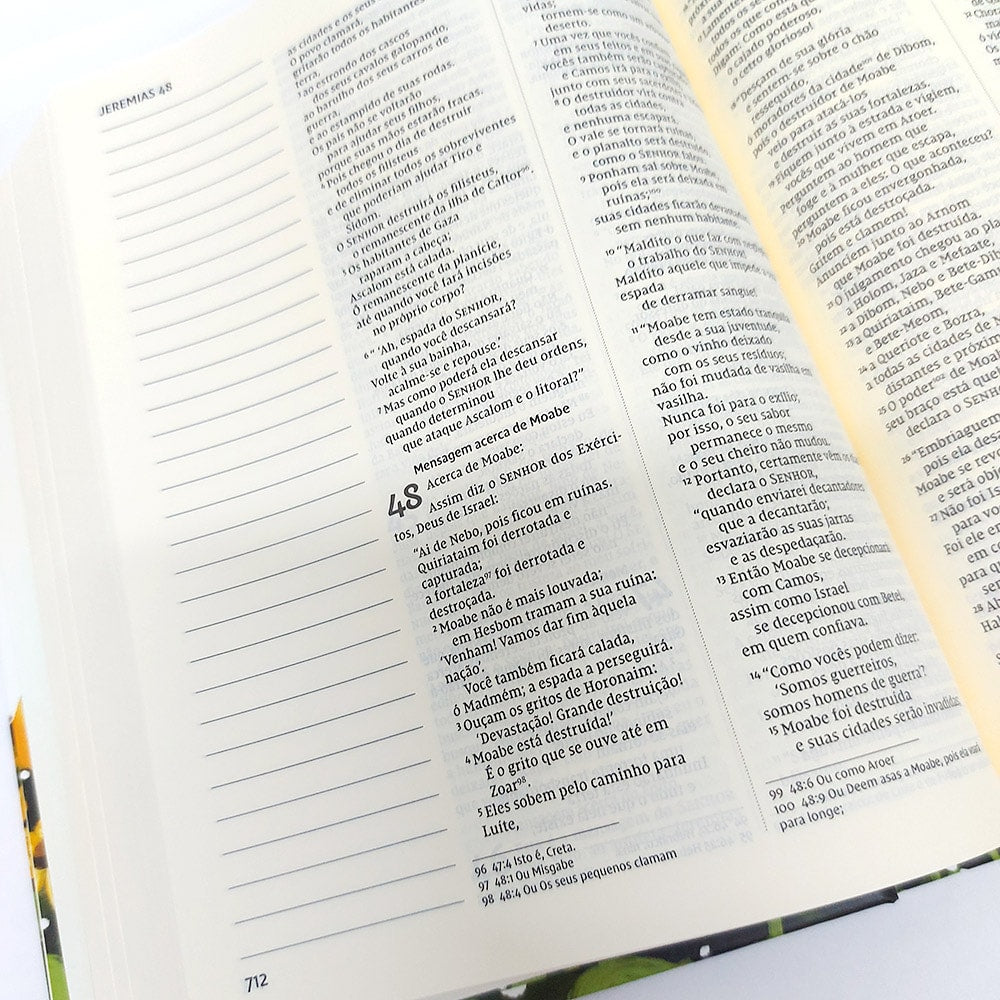 JEREMIAS 48
as cidades e os seus habitantes
o povo clamará,
gritarão todos os habitantes
terra,
ao estrondo dos cascos
dos seus cavalos galopando,
ao barulho dos seus carros de
guerra,
e ao estampido de suas rodas.
Os pais não se voltarão
para ajudar seus filhos,
porque suas mãos estarão fracas.
4 Pois chegou o dia de destruir
todos os filisteus
e de eliminar todos os sobreviventes
que poderiam ajudar Tiro e
Sidom.
O SENHOR destruirá os filisteus,
o remanescente da ilha de Caftor96.
5 Os habitantes de Gaza
raparam a cabeça;
Ascalom está calada.
Ó remanescente da planície,
até quando você fará incisões
no próprio corpo?
6 “ ‘Ah, espada do SENHOR,
quando você descansará?
Volte à sua bainha,
acalme-se e repouse.’
7 Mas como poderá ela descansar
quando o SENHOR lhe deu ordens,
quando determinou
que ataque Ascalom e o litoral?”
Mensagem acerca de Moabe
48 Acerca de Moabe:
Assim diz o SENHOR dos Exérci-
tos, Deus de Israel:
“Ai de Nebo, pois ficou em ruínas.
Quiriataim foi derrotada e
capturada;
a fortaleza97 foi derrotada e
destroçada.
2 Moabe não é mais louvada;
em Hesbom tramam a sua ruína:
‘Venham! Vamos dar fim àquela
nação’.
Você também ficará calada,
ó Madmém; a espada a perseguirá.
3 Ouçam os gritos de Horonaim:
‘Devastação! Grande destruição!
4 Moabe está destruída!’
É o grito que se ouve até em
Zoar98.
5 Eles sobem pelo caminho para
Luíte,
96 47:4 Isto é, Creta.
97 48:1 Ou Misgabe
98 48:4 Ou Os seus pequenos clamam
712
vidas;
tornem-se como um
7 Uma vez que vocês
em seus feitos e em
vocês também serão
e Camos irá para o
junto com seus sacerdotes
8 O destruidor virá
todas as cidades,
e nenhuma escapará.
O vale se tornará ruínas,
e o planalto será destruído
como o SENHOR falou.
9 Ponham sal sobre Moabe,
pois ela será deixada em
ruínas;100
suas cidades ficarão devastadas
sem nenhum habitante.
10 “Maldito o que faz com
o trabalho do SENHOR!
Maldito aquele que impede a
espada
de derramar sangue!
11 “Moabe tem estado tranquila
desde a sua juventude,
como o vinho deixado
com os seus resíduos;
não foi mudada de vasilha em
vasilha.
Nunca foi para o exílio;
por isso, o seu sabor
permanece o mesmo
e o seu cheiro não mudou.
12 Portanto, certamente vêm os
declara o SENHOR,
“quando enviarei decantadores
que a decantarão;
esvaziarão as suas jarras
e as despedaçarão.
13 Então Moabe se decepcionará
com Camos,
assim como Israel
se decepcionou com Betel,
em quem confiava.
14 “Como vocês podem dizer:
‘Somos guerreiros,
somos homens de guerra?’
15 Moabe foi destruída
e suas cidades serão invadidas
99 48:6 Ou como Aroer
100 48:9 Ou Deem asas a Moabe, pois ela voará
para longe;
o cajado poderoso,
o cetro glorioso!
18 “Desçam de sua glória
e sentem-se sobre o chão
ressequido,
ó moradores da cidade de Dibom,
pois o destruidor de Moabe
veio para atacá-los
e destruir as suas fortalezas.
19 Fiquem junto à estrada e vigiem,
vocês que vivem em Aroer.
Perguntem ao homem que
foge e à mulher que escapa,
perguntem a eles: O que aconteceu?
20 Moabe ficou envergonhada,
pois está destroçada.
Gritem e clamem!
Anunciem junto ao Arnom
que Moabe foi destruída.
21 O julgamento chegou ao
a Holom, Jaza e Mefaate,
22 a Dibom, Nebo e Bete-
23 a Quiriataim, Bete-Gamul
e Bete-Meom,
24 a Queriote e Bozra,
a todas as cidades de
distantes e próximas.
25 O poder102 de Moabe
seu braço está
declara o SENHOR.
26 “Embriaguem
pois ela
Moabe se
e será
27 Não foi